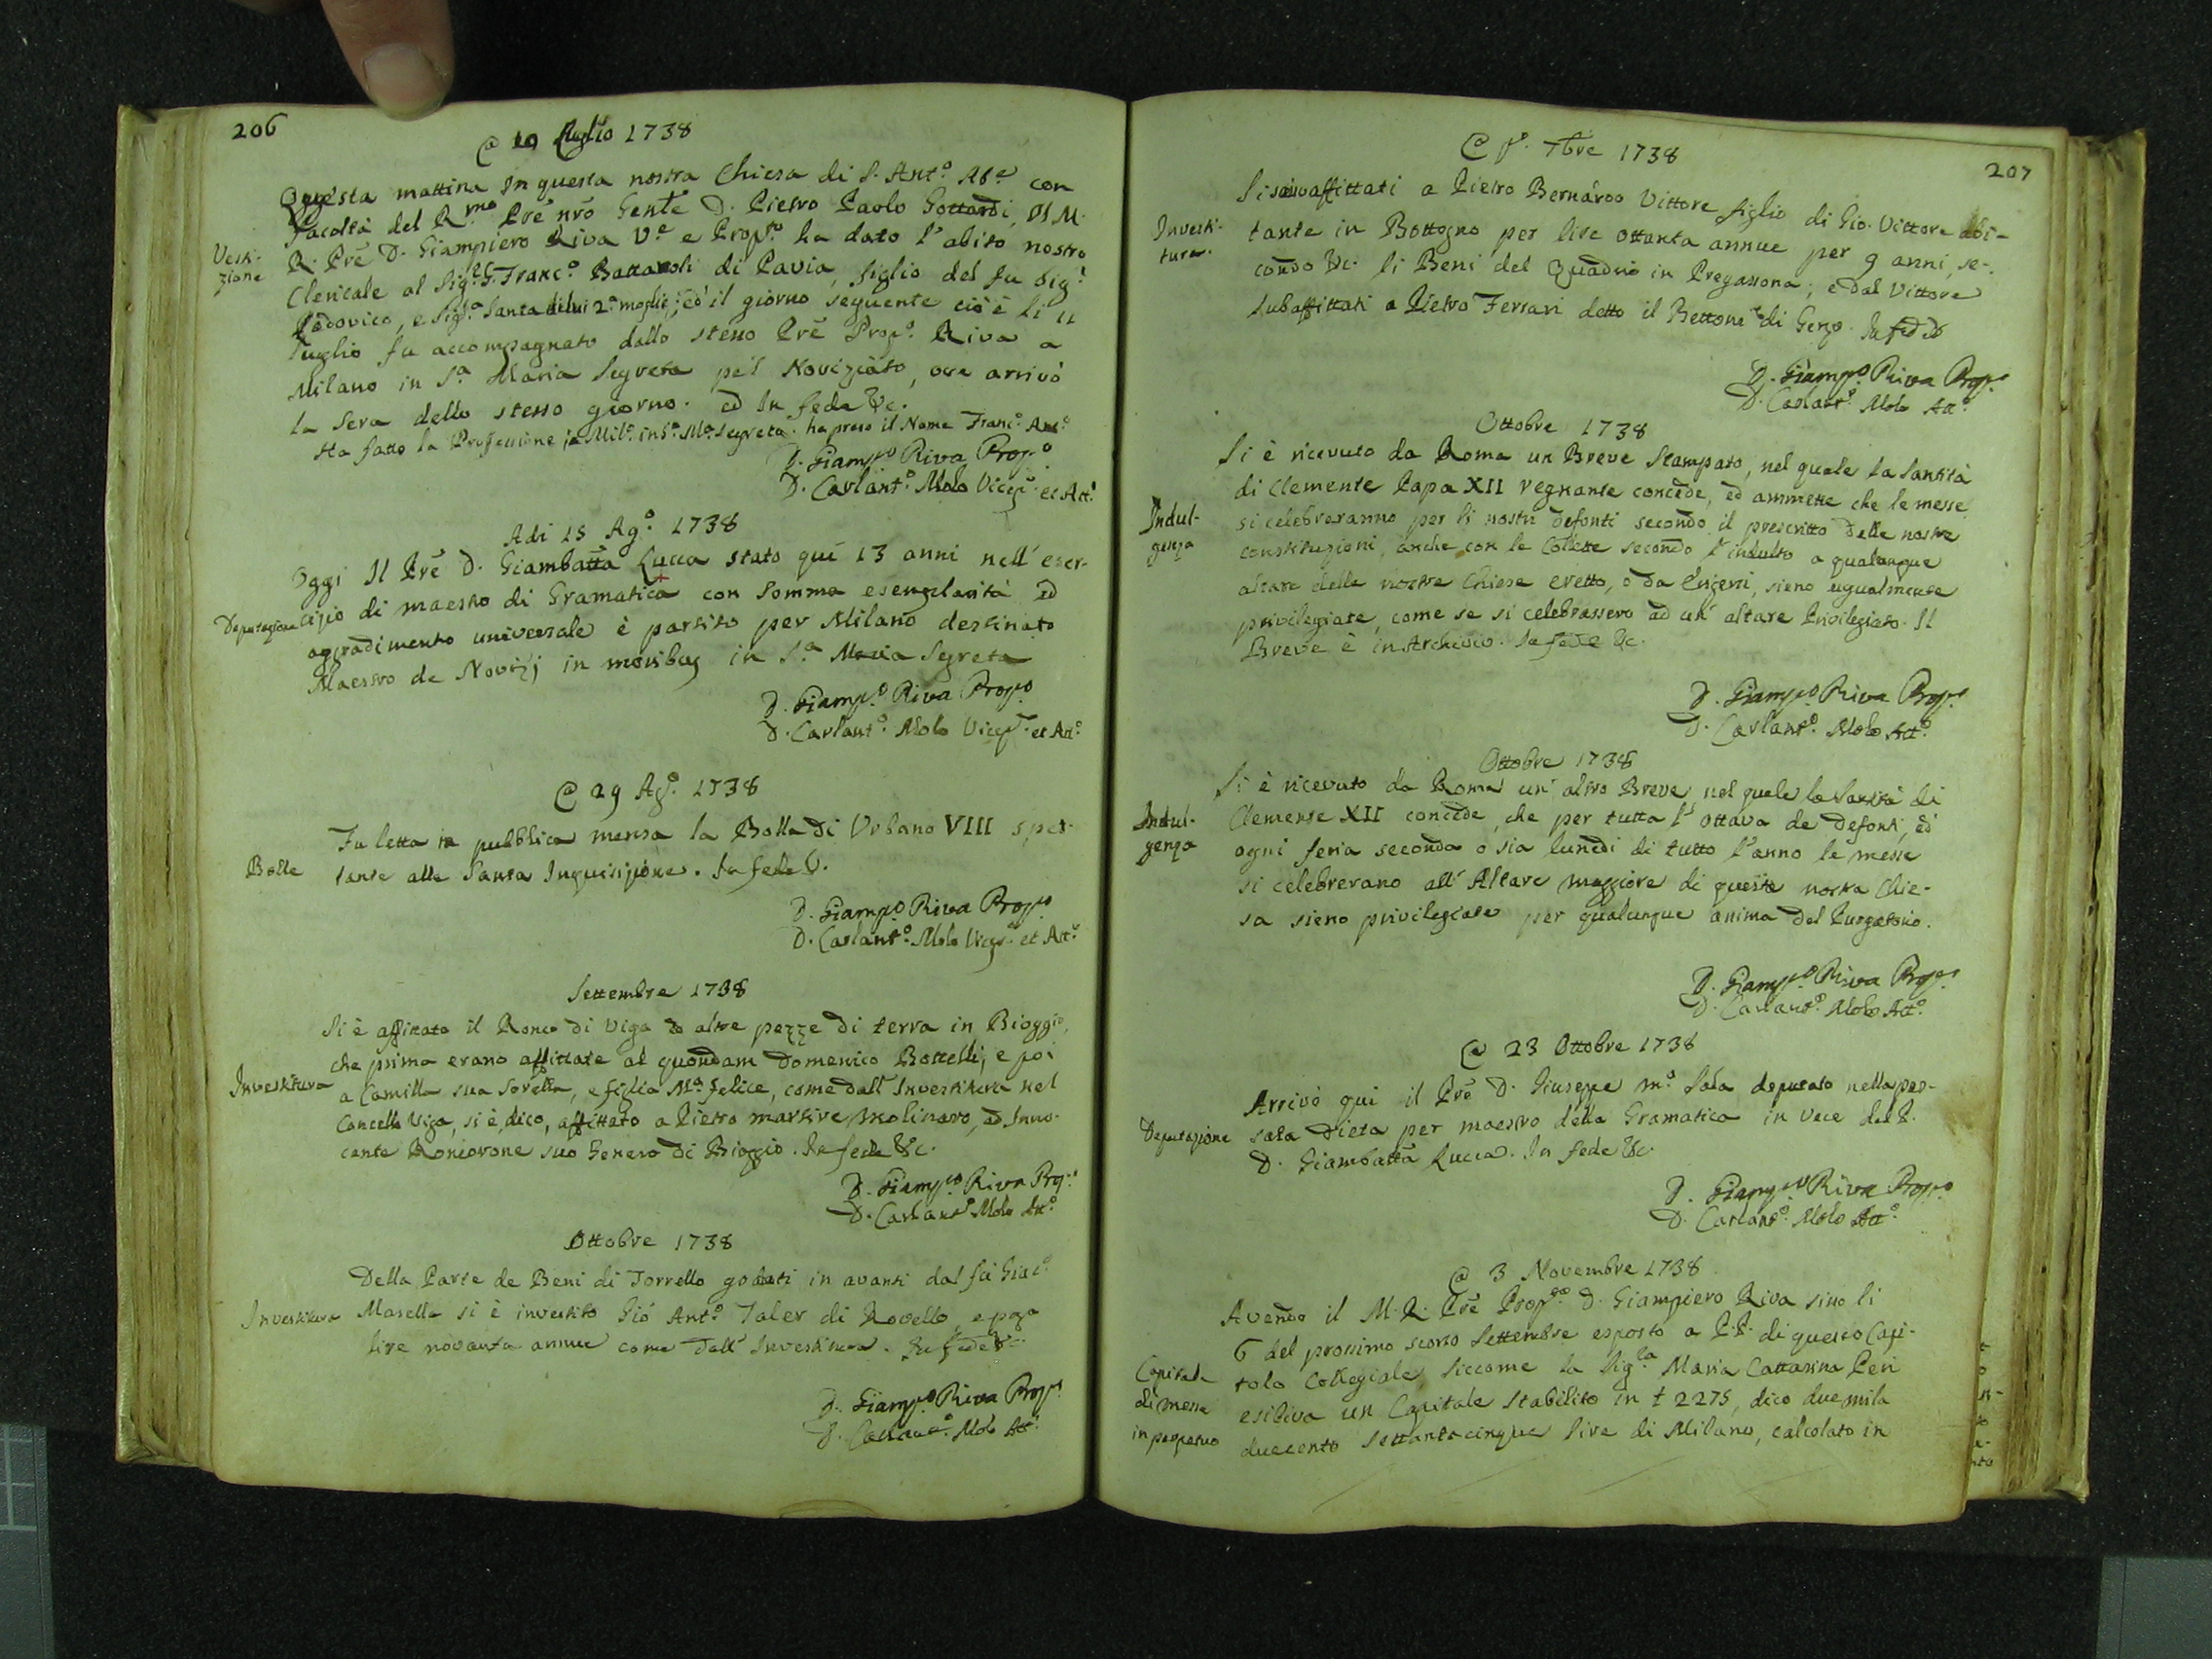 206
@ 10 Luglio 1738
Questa mattina in questa nostra Chiesa di S. Ant.º Ab.e con
facoltà del R.mo Prē nrō Genle D. Pietro Paolo Gottardi, Il M.
Vesti-
zione
R. Prē D. Giampiero Riva V.e e Prop.to ha dato l'abito nostro
Clericale al Sig.r G. Franc.º Battaroli di Pavia, figlio del fu Sig.r
Lodovico, e Sig.a Santa di lui 2.a moglie; ed il giorno seguente cioè li 11
Luglio fu accompagnato dallo stesso Prē Prop.º Riva a
Milano in S.a Maria Segreta pel Noviziato, ove arrivò
la sera dello stesso giorno. ed In fede &c.
Ha fatto la Professione in Mil.º in S.a M.a Segreta. ha preso il Nome Franc.º Ant.º
D. Giamp.º Riva Prop.º
D. Carlant.º Molo Vicep.º et Att.º
Adi 15 Ag.º 1738
Oggi Il Prē D. Giambatta Lucca stato quì 13 anni nell'eser-
Deputazione
cizio di maestro di Gramatica con somma esemplarità ed
aggradimento universale è partito per Milano destinato
Maestro de Novizj in moribus in S.a Maria Segreta
D. Giamp.º Riva Prop.º
D. Carlant.º Molo Vicep.º et Att.º
@ 29 Ag.º 1738
Fu letta in pubblica mensa la Bolla di Urbano VIII spet-
Bolle
tante alla Santa Inquisizione. In fede &.
D. Giamp.º Riva Prop.º
D. Carlant.º Molo Vicep.º et Att.º
Settembre 1738
Si è affittato il Ronco di Viga ed altre pezze di terra in Bioggio,
che prima erano affittate al quondam Domenico Bottelli, e poi
Investitura
a Camilla sua sorella, e figlia M.a Felice, come dall'Investitura nel
Cancello Viga, si è, dico, affittato a Pietro martire molinaro, ed Inno-
cente suo Genero di Bioggio. In fede &c.
D. Giamp.º Riva Prop.º
D. Carlant.º Molo Att.º
Ottobre 1738
Della Parte de Beni di Torrello godati in avanti dal fù Giac.º
Investitura
Masella si è investito Giò Ant.º Taler di Rovello, e paga
lire novanta annue come dall'Investitura. In fede &
D. Giamp.º Riva Prop.º
D. Carlant.º Molo Att.º
207
@ p.º 7bre 1738
Si sono affittati a Pietro Bernardo Vittore figlio di Gio. Vittore abi-
Investi-
tura.
tante in Bottogno per lire ottanta annue per 9 anni, se-
condo &c. li Beni del Quadrio in Pregassona; e dal Vittore
subaffittati a Pietro Ferrari detto il Bettone di Gerzo. In fed
D. Giamp.º Riva Prop.º
D. Carlant.º Molo Att.º
Ottobre 1738
Si è ricevuto da Roma un Breve stampato, nel quale la Santità
di Clemente Papa XII regnante concede, ed ammette che le messe
Indul-
genza
si celebreranno per li nostri defonti secondo il prescritto delle nostre
constituzioni, anche con le Collette secondo l'indulto a qualunque
altare delle nostre Chiese eretto, o da Erigersi, sieno ugualmente
privilegiate, come se si celebrassero ad un' altare Privilegiato. Il
Breve è in Archivio. In fede &c.
D. Giamp.º Riva Prop.º
D. Carlant.º Molo Att.º
Ottobre 1738
Si è ricevuto da Roma un' altro Breve, nel quale la Santità di
Indul-
genza
Clemente XII concede, che per tutta l'ottava de defonti, ed
ogni feria seconda o sia lunedì di tutto l'anno le messe
si celebrerano all'Altare maggiore di questa nostra Chie-
sa sieno privilegiate per qualunque anima del Purgatorio.
D. Giamp.º Riva Prop.º
D. Carlant.º Molo Att.º
@ 23 Ottobre 1738
Arrivò qui il Prē D. Giuseppe M.a Sala deputato nella pas-
Deputazione
sata Dieta per maestro della Gramatica in vece del P.
D. Giambatta Lucca. In fede &c.
D. Giamp.º Riva Prop.º
D. Carlant.º Molo Att.º
@ 3 Novembre 1738
Avendo il M. R. Prē Prop.to D. Giampiero Riva sino li
6 del prossimo scorso Settembre esposto a P.P. di questo Capi-
Capitale
di messe
in perpetuo
tolo Collegiale, siccome la Sig.ra Maria Cattarina Peri
esibiva un Capitale stabilito in ł 2275, dico due mila
duecento settantacinque lire di Milano, calcolato in